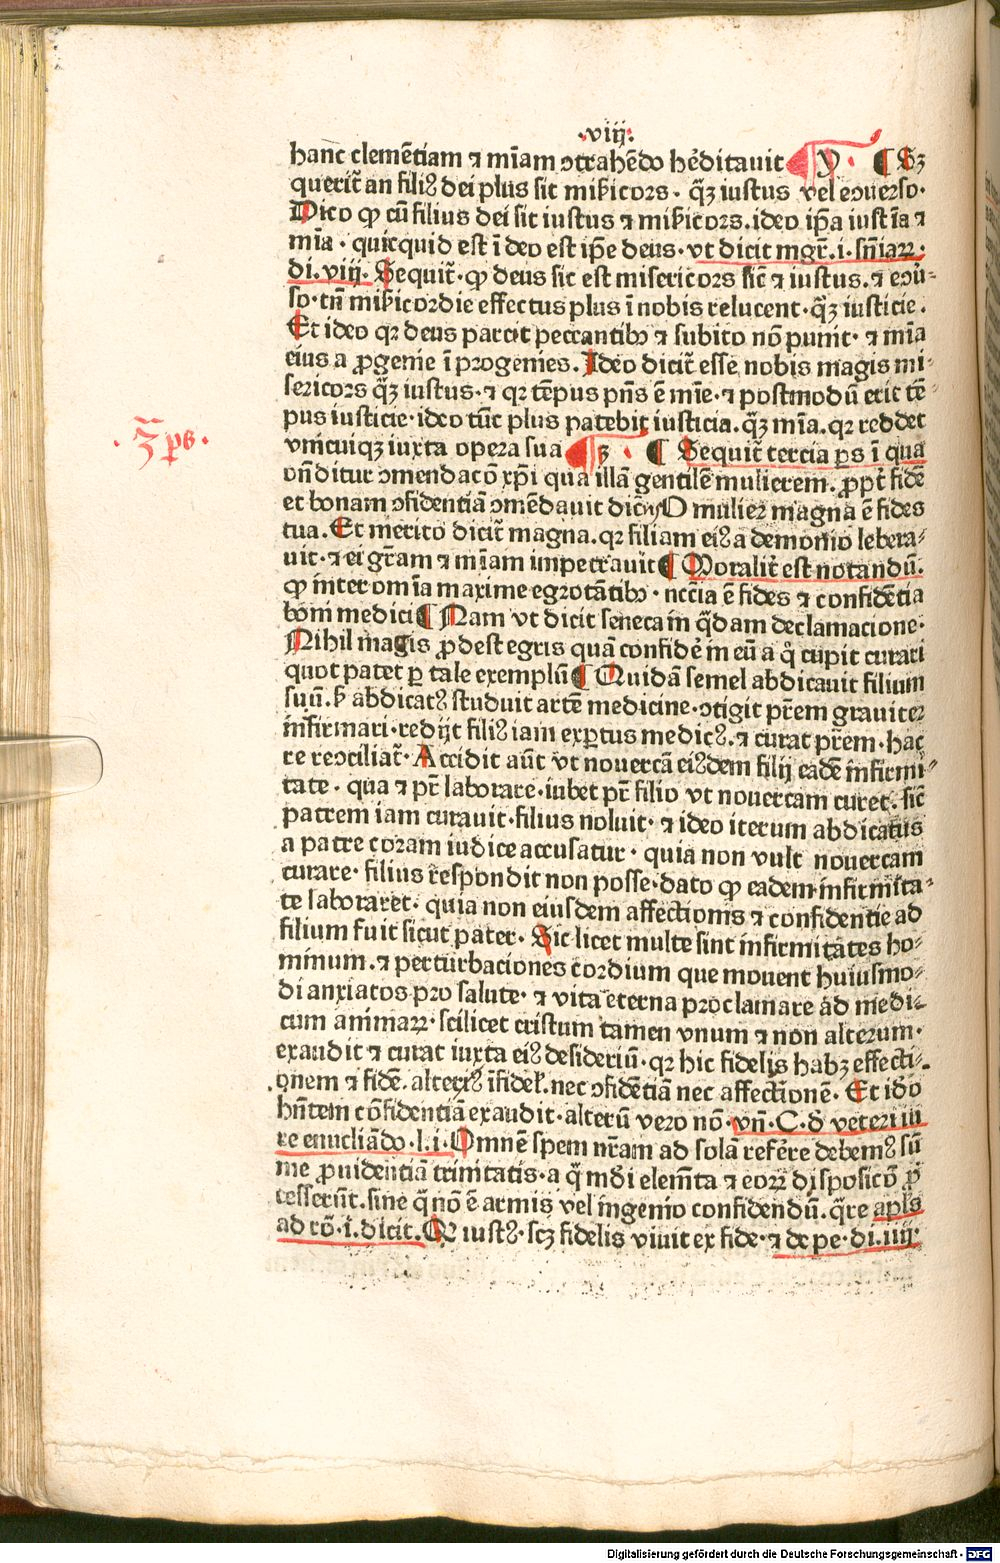 ·viij·
hanc clemētiam ⁊ mīam ↄtrahēdo hēditauit ¶ y · ¶ Sꝫ
querit̄ an filiꝰ dei plus sit mi̅icors · q̄ꝫ iustus vel eↄuerso·
Dico ꝙ cū filius dei sit iustus ⁊ mi̅icors . ideo ip̄a iustīa ⁊
mīa · quicquid est ī deo est ip̄e deus · vt dicit mgr̄ . i · sn̄iaꝝ ·
di . viij · Sequit̄ · ꝙ deus sic est misericors sic̄ ⁊ iustus . ⁊ eↄū-
so · tn̄ mi̅icordie effectus plus ī nobis relucent · q̄ꝫ iusticie ·
Et ideo qꝛ deus parcit peccantibꝫ ⁊ subito nō punit · ⁊ mīa
eius a ꝓgenie ī progenies . Ideo dicit̄ esse nobis magis mi-
sericors q̄ꝫ iustus · ⁊ qꝛ tēpus pn̄s ē mīe · ⁊ postmodū erit tē-
pus iusticie · ideo tūc plus patebit iusticia . q̄ꝫ mīa . qꝛ reddet
vnicuiqꝫ iuxta opera sua ¶ z · ¶ Sequit̄ tercia ꝑs ī qua
·3̄ ps·
on̄ditur ↄmendacō xp̄i qua illā gentilē mulierem . ꝓpt̄ fidē
et bonam ↄfidentiā ↄmēdauit dicēs O mulier magna ē fides
tua . Et merito dicit̄ magna . qꝛ filiam eiꝰ a demonio lebera-
uit · ⁊ ei gr̄am ⁊ mīam impetrauit ¶ Moralit̄ est notandū .
ꝙ inter om̄ia maxime egrotātibꝫ · nccīa ē fides ⁊ confidētia
boni medici ¶ Nam vt dicit seneca in q̄dam declamacione ·
Nihil magis ꝓdest egris quā confidē in eū a q̄ cupit curari
quot patet ꝑ tale exemplū ¶ Quidā semel abdicauit filium
suū . abdicatꝰ studuit artē medicine · ↄtigit pr̄em grauiter
infirmari · redijt filiꝰ iam exꝑtus medicꝰ . ⁊ curat pr̄em · hac
re reↄciliat̄ · Accidit aūt vt nouercā eiꝰdem filij eadē infirmi-
tate · qua ⁊ pr̄ laborare · iubet pr̄ filio vt nouercam curet . sic̄
patrem iam curauit · filius noluit · ⁊ ideo iterum abdicatus
a patre coram iudice accusatur · quia non vult nouercam
curare · filius respondit non posse · dato ꝙ eadem infirmita-
te laboraret · quia non eiusdem affectionis ⁊ confidentie ad
filium fuit sicut pater · Sic licet multe sint infirmitates ho-
minum . ⁊ perturbaciones cordium que mouent huiusmo-
di anxiatos pro salute · ⁊ vita eterna proclamare ad medi-
cum animaꝝ · scilicet cristum tamen vnum ⁊ non alterum ·
exaudit ⁊ curat iuxta eiꝰ desideriū · qꝛ hic fidelis habꝫ effecti-
onem ⁊ fidē . altexꝰ īfidel̄ . nec ↄfidētiā nec affectionē · Et idō
hn̄tem cōfidentiā exaudit · alterū vero nō · vn̄ · C · d̄ veteri iu
re enucliādo . l . i · Omnē spem nr̄am ad solā refēre debemꝰ sū
me ꝓuidentiā trinitatis · a q̄ mūdi elemn̄ta ⁊ eoꝝ disposicō ꝓ
cesserūt . sine q̄ nō ē armis vel ingenio confidendū . q̄re apl̄s
ad rō · i · dicit . Qꝛ iustꝰ · scꝫ fidelis viuit ex fide · ⁊ de pe · di . iiij ·
Digitalisierung gefördert durch die Deutsche Forschungsgemeinschaft - DFG